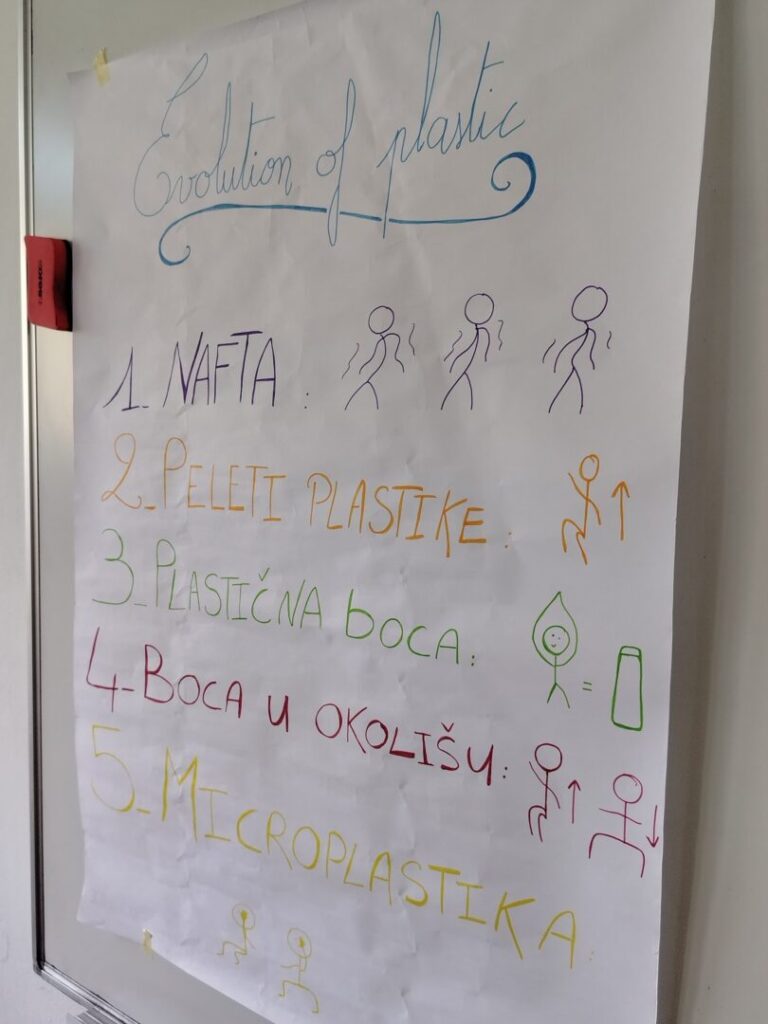 Evolution of plastic
1_ NAFTA :
2_ PELETI PLASTIKE :
3_ PLASTIČNA bOCA :
=
4_ BOCA U OKOLIŠU :
5_ MICROPLASTIKA :